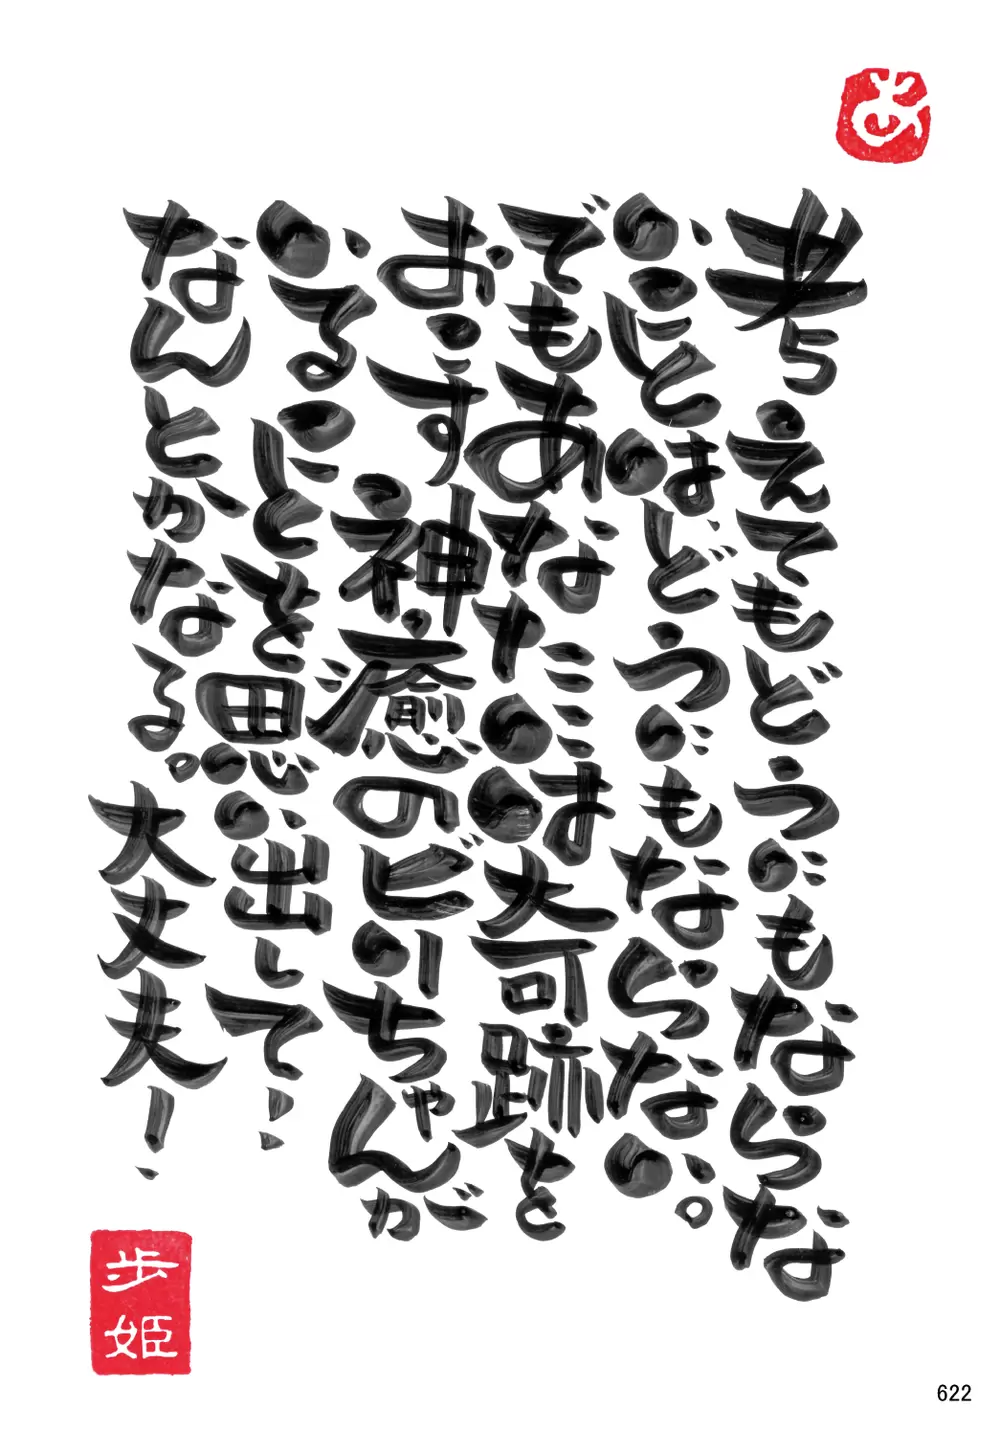 あ
考えてもどうにもならな
いことはどうにもならない。
でもあなたには大奇跡を
おこす神癒のピーちゃんが
いることを思い出して！
なんとかなる。大丈夫！
歩
姫
622